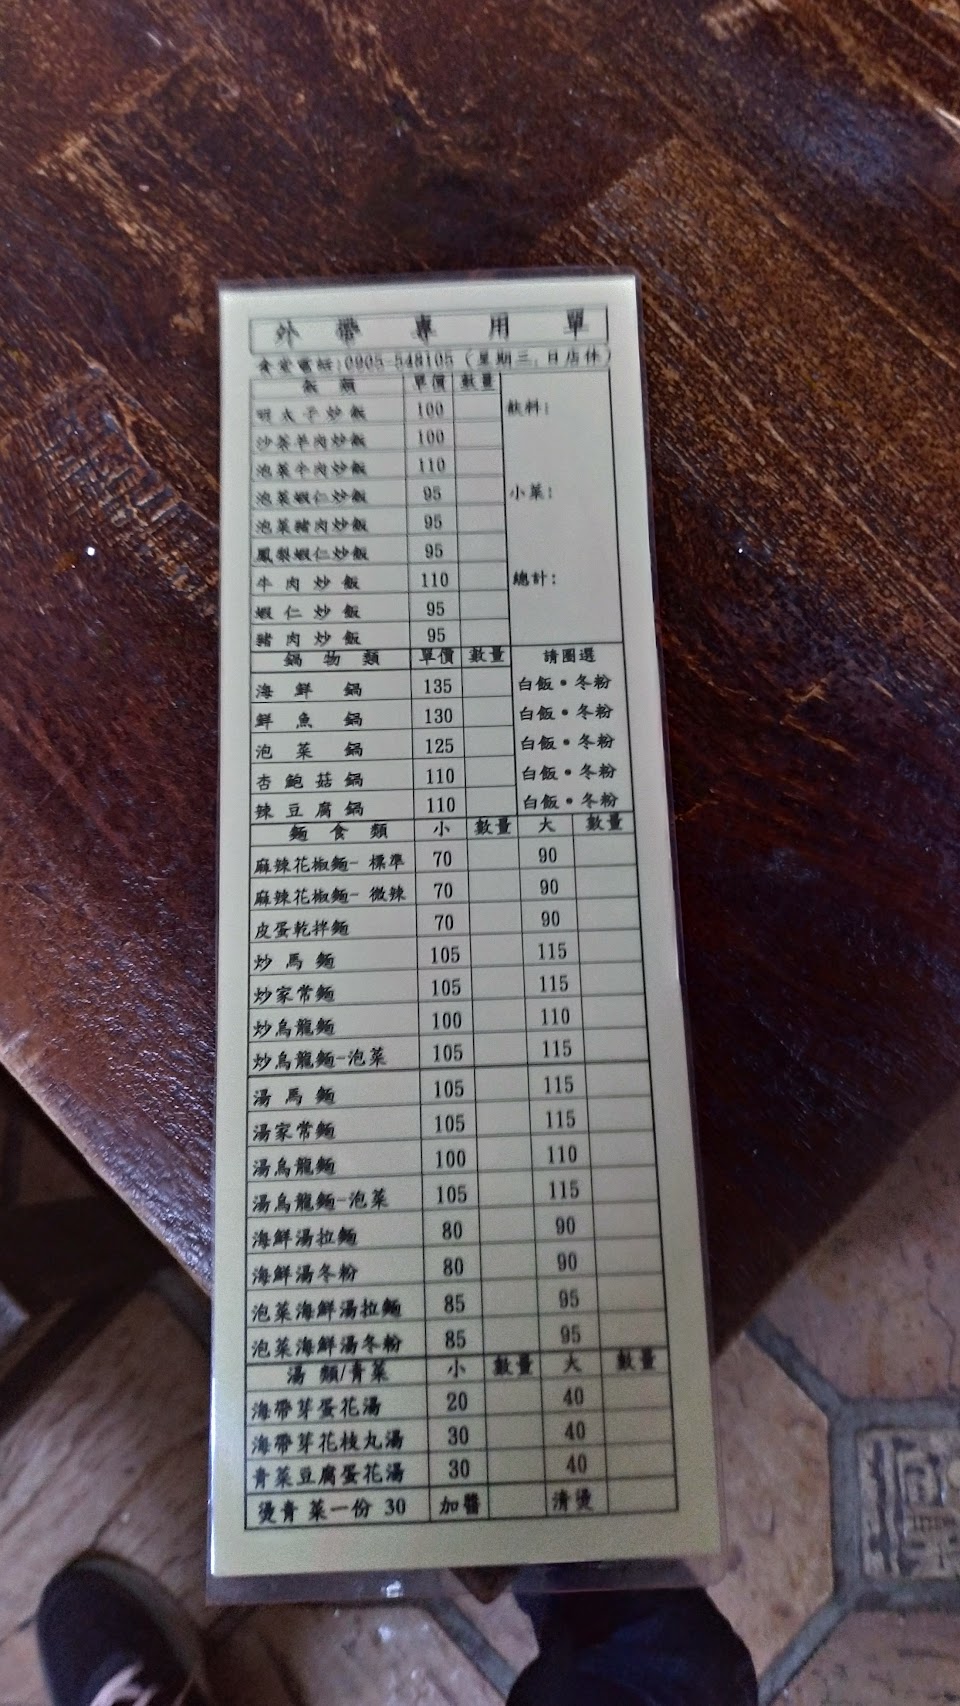 外帶專用單
食堂電話:0905-548105 (星期三.日店休)
飯類 單價 數量
明太子炒飯 100 飲料:
沙茶羊肉炒飯 100
泡菜牛肉炒飯 110
泡菜蝦仁炒飯 95 小菜:
泡菜豬肉炒飯 95
鳳梨蝦仁炒飯 95
牛肉炒飯 110 總計:
蝦仁炒飯 95
豬肉炒飯 95
鍋物類 單價 數量 請圈選
海鮮鍋 135 白飯•冬粉
鮮魚鍋 130 白飯•冬粉
泡菜鍋 125 白飯•冬粉
杏鮑菇鍋 110 白飯•冬粉
辣豆腐鍋 110 白飯•冬粉
麵食類 小 數量 大 數量
麻辣花椒麵-標準 70 90
麻辣花椒麵-微辣 70 90
皮蛋乾拌麵 70 90
炒馬麵 105 115
炒家常麵 105 115
炒烏龍麵 100 110
炒烏龍麵-泡菜 105 115
湯馬麵 105 115
湯家常麵 105 115
湯烏龍麵 100 110
湯烏龍麵-泡菜 105 115
海鮮湯拉麵 80 90
海鮮湯冬粉 80 90
泡菜海鮮湯拉麵 85 95
泡菜海鮮湯冬粉 85 95
湯類/青菜 小 數量 大 數量
海帶芽蛋花湯 20 40
海帶芽花枝丸湯 30 40
青菜豆腐蛋花湯 30 40
燙青菜一份 30 加醬 清燙